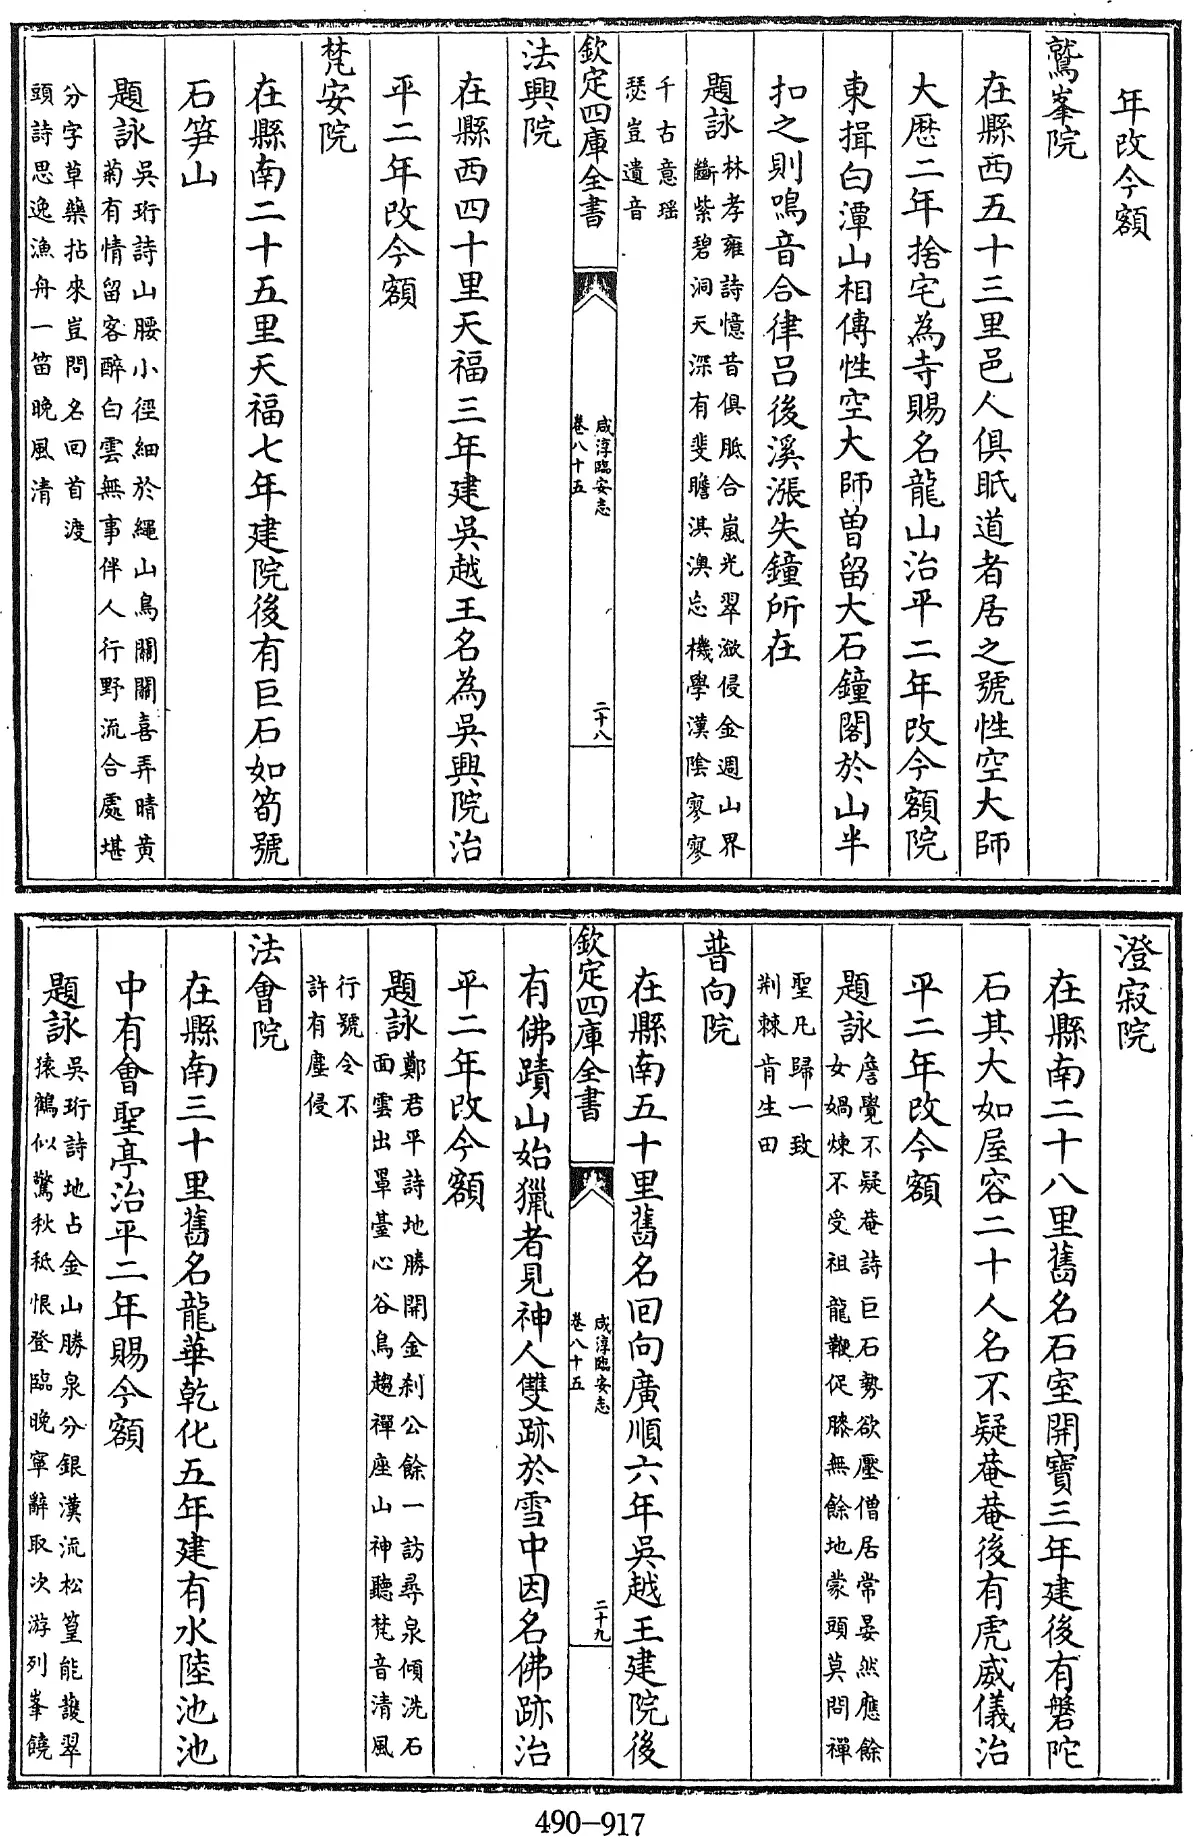 年改今額
鷲峯院
在縣西五十三里邑人俱眂道者居之號性空大師
大厯二年捨宅為寺賜名龍山治平二年改今額院
東揖白潭山相傳性空大師曽留大石鐘閣於山半
扣之則鳴音合律呂後溪漲失鐘所在
題詠林孝雍詩憶昔俱胝合嵐光翠潋侵金週山界
斷紫碧洞天深有斐瞻淇澳忘機學漢陰寥寥
千古意瑶
瑟豈遺音
欽定四庫全書
咸淳臨安志
卷八十五
二十八
法興院
在縣西四十里天福三年建吳越王名為吳興院治
平二年改今額
梵安院
在縣南二十五里天福七年建院後有巨石如筍號
石笋山
題詠吳珩詩山腰小徑細於繩山鳥關關喜弄晴黄
菊有情留客醉白雲無事伴人行野流合處堪
分字草藥拈來豈問名回首渡
頭詩思逸漁舟一笛晚風清
澄寂院
在縣南二十八里舊名石室開寶三年建後有磐陀
石其大如屋容二十人名不疑菴菴後有虎威儀治
平二年改今額
題詠詹覺不疑菴詩巨石勢欲壓僧居常晏然應餘
女媧煉不受祖龍鞭促膝無餘地蒙頭莫問禪
聖凡歸一致
荆棘肯生田
普向院
在縣南五十里舊名回向廣順六年吳越王建院後
欽定四庫全書
咸淳臨安志
卷八十五
二十九
有佛蹟山始獵者見神人雙跡於雪中因名佛跡治
平二年改今額
題詠鄭君平詩地勝開金刹公餘一訪尋泉傾洗石
面雲出罩臺心谷鳥趨禪座山神聽梵音清風
行號令不
許有塵侵
法會院
在縣南三十里舊名龍華乾化五年建有水陸池池
中有會聖亭治平二年賜今額
題詠吳珩詩地占金山勝泉分銀漢流松篁能護翠
猿鶴似驚秋秪恨登臨晚寧辭取次游列峯饒
490-917